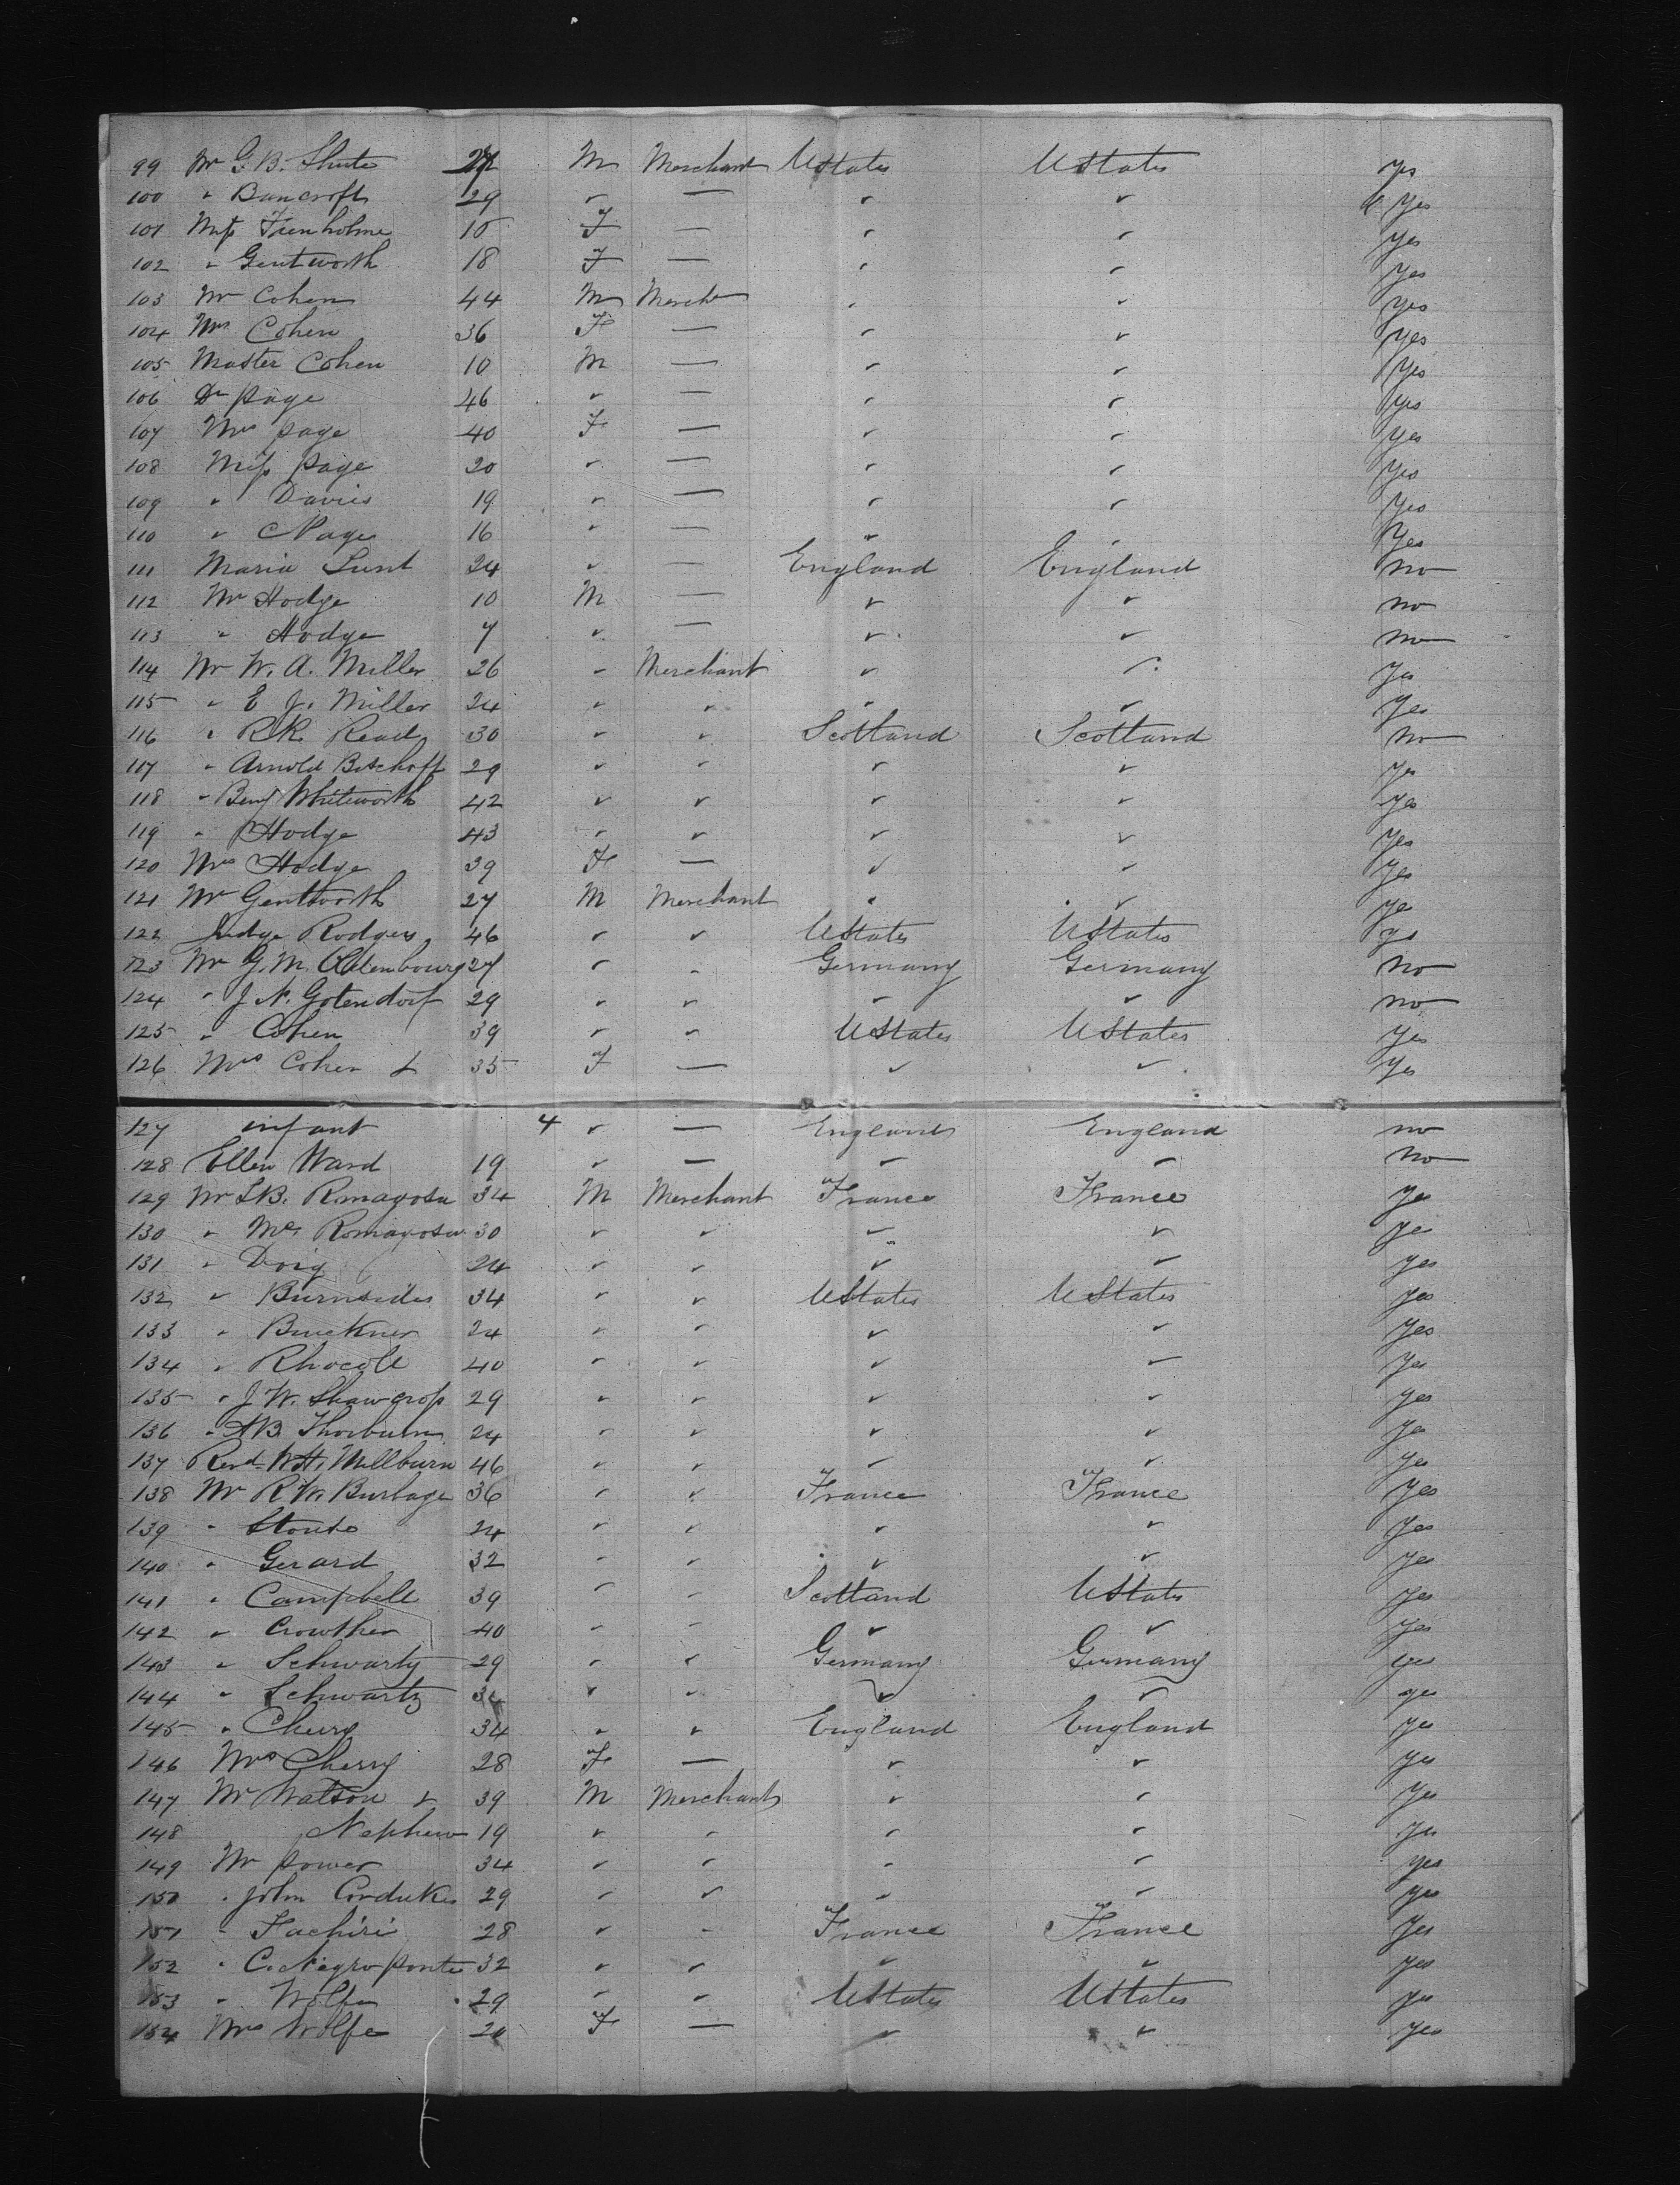 99 Mr G. B. Shute M Merchant UStates UStates yes
100 " Bancroft 29 " — " " yes
101 Miss Trenholme 15 F — " " yes
102 " Gentworth 18 F — " " yes
103 Mr Cohen 44 M Mercht " " yes
104 Mrs Cohen 36 F — " " yes
105 Master Cohen 10 M — " " yes
106 Dr Page 46 " — " " yes
107 Mrs Page 40 F — " " yes
108 Miss Page 20 " — " " yes
109 " Davies 19 " — " " yes
110 " Page 16 " — " " yes
111 Maria Lunt 24 " — England England no
112 Mr Hodge 10 M — " " no
113 " Hodge 7 " — " " no
114 Mr W. A. Miller 26 " Merchant " " yes
115 " E J. Miller 24 " " " " yes
116 " R. Read 30 " " Scotland Scotland no
117 " Arnold Bischoff 29 " " " " yes
118 " Benj Whitworth 42 " " " " yes
119 " Hodge 43 " " " " yes
120 Mrs Hodge 39 F — " " yes
121 Mr Gentworth 27 M Merchant " " ye
122 Judge Rodgers 46 " " UStates UStates ys
123 Mr G. M. Oldenbourg 27 " " Germany Germany no
124 " J N. Gotendorf 29 " " " " no
125 " Cohen 39 " " UStates UStates yes
126 Mrs Cohen & 35 F — " " yes
127 infant 4 " — England England no
128 Ellen Ward 19 " — " " no
129 Mr L B. Romagosa 34 M Merchant France France yes
130 " Mr Romagosa 30 " " " " yes
131 " Doig 24 " " " " yes
132 " Burnsides 34 " " UStates UStates yes
133 " Buckner 24 " " " " yes
134 " Rhocole 40 " " " " yes
135 " J W. Shawcross 29 " " " " yes
136 " A B. Thorburn 24 " " " " yes
137 Revd W H. Millburn 46 " " " " yes
138 Mr R W. Burbage 36 " " France France yes
139 " Stouts 24 " " " " yes
140 " Gerard 32 " " " " yes
141 " Campbell 39 " " Scotland UStates yes
142 " Crowther 40 " " " " yes
143 " Schwartz 29 " " Germany Germany yes
144 " Schwartz 34 " " " " yes
145 " Cherry 34 " " England England yes
146 Mrs Cherry 28 F — " " yes
147 Mr Watson & 39 M Merchant " " yes
148 Nephew 19 " " " " yes
149 Mr Power 34 " " " " yes
150 " John Cordukes 29 " " " " yes
151 " Fachiri 28 " " France France yes
152 " C. Negroponte 32 " " " " yes
153 " Wolfe 29 " " UStates UStates yes
154 Mrs Wolfe 20 F — " " yes